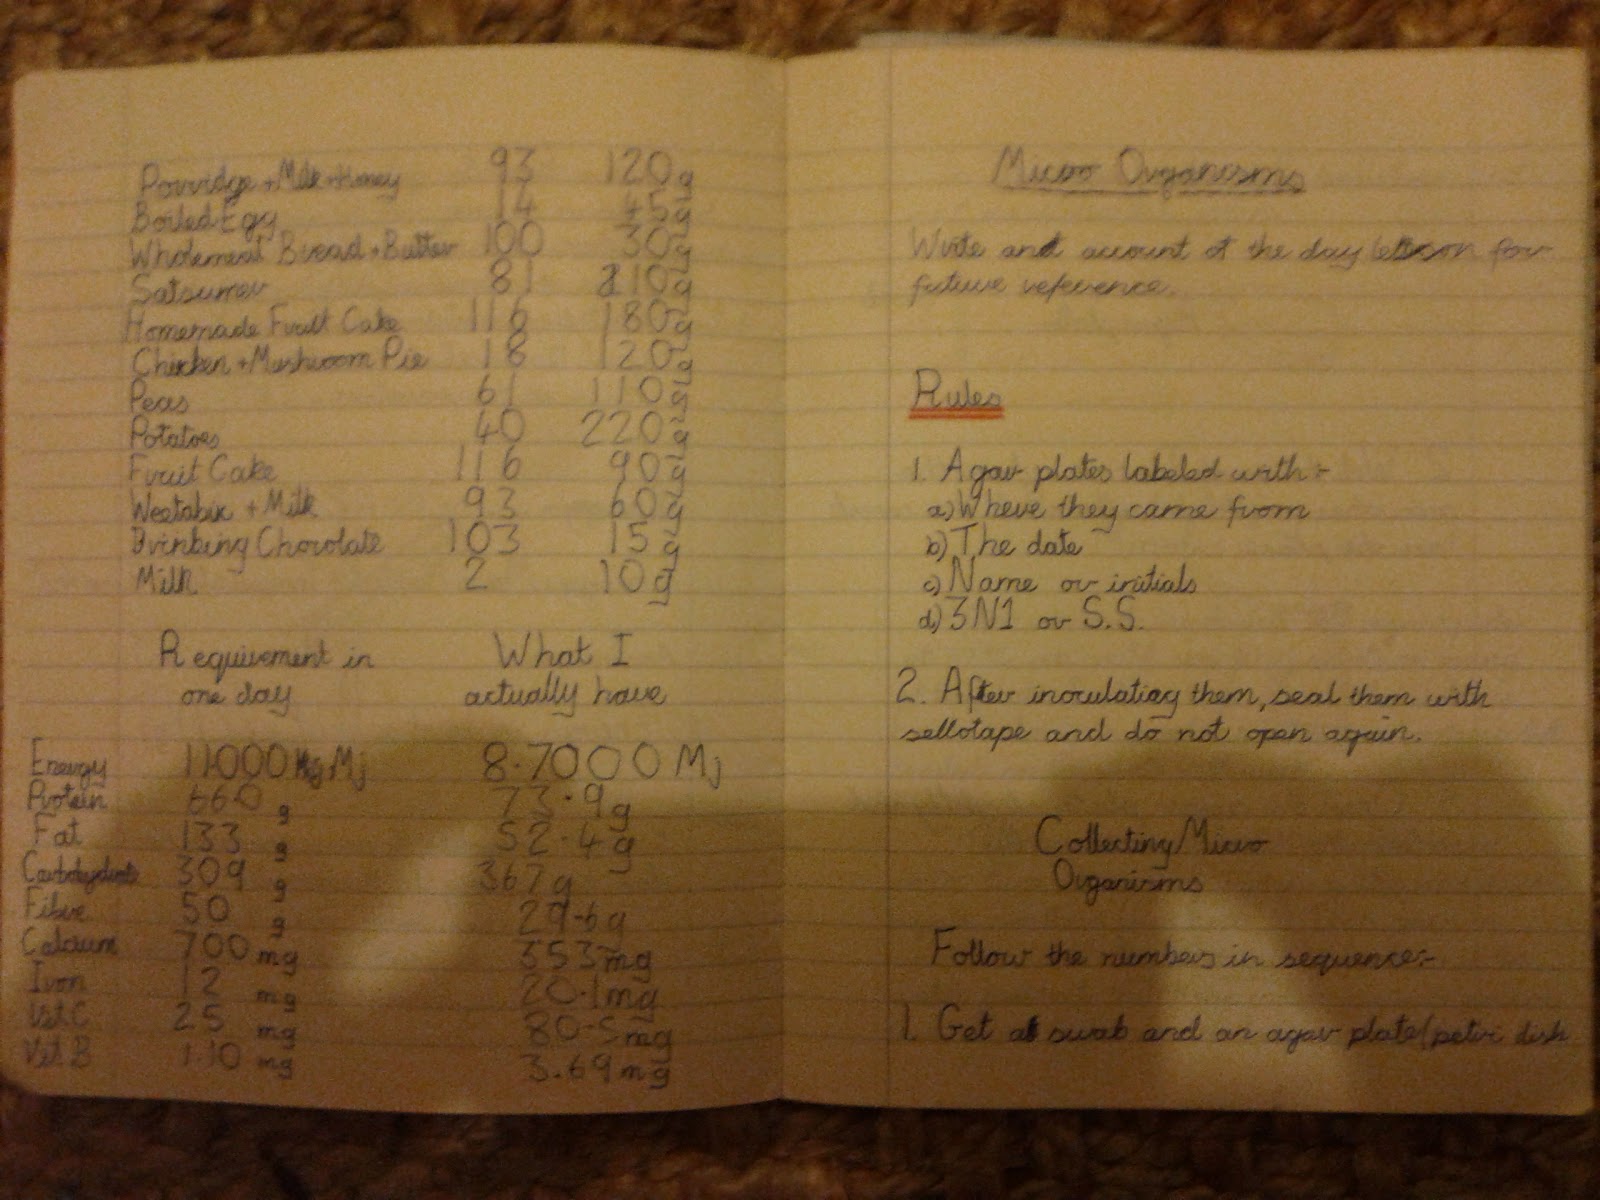 Porridge + Milk + Honey 93 120g
Boiled Egg 14 45g
Wholemeal Bread + Butter 100 30g
Satsumer 81 210g
Homemade Fruit Cake 116 180g
Chicken + Mushroom Pie 18 120g
Peas 61 110g
Potatoes 40 220g
Fruit Cake 116 90g
Weetabix + Milk 93 60g
Drinking Chocolate 103 15g
Milk 2 10g
Requirement in What I
one day actually have
Energy 11000 Mj 8.7000 Mj
Protein 660 g 73.9g
Fat 133 g 52.4g
Carbohydrate 309 g 367g
Fibre 50 g 29.6g
Calcium 700 mg 353mg
Iron 12 mg 20.1mg
Vit C 25 mg 80.5mg
Vit B 1.10 mg 3.69mg
Micro Organisms
Write and account of the day lesson for
future reference.
Rules
1. Agar plates labeled with:-
a) Where they came from
b) The date
c) Name or initials
d) 3N1 or S.S.
2. After inoculating them, seal them with
sellotape and do not open again.
Collecting Micro
Organisms
Follow the numbers in sequence:-
1. Get a swab and an agar plate (petri dish